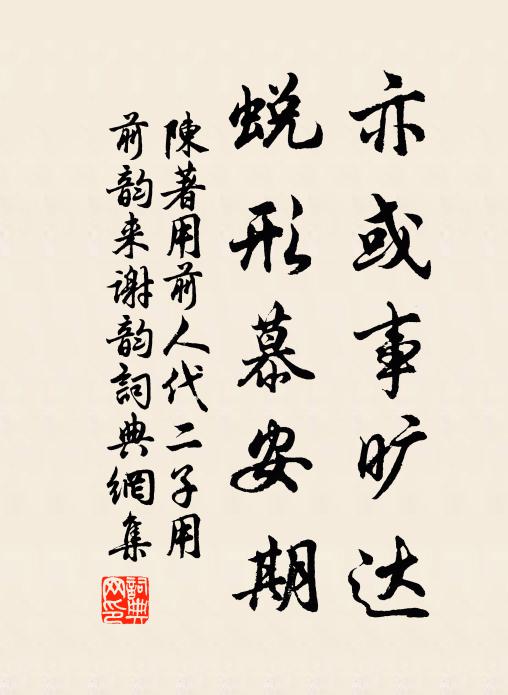 亦或事旷达
蜕形慕安期
陳著用前人代二子用
前韵来谢韵詞典網集
詞典網印